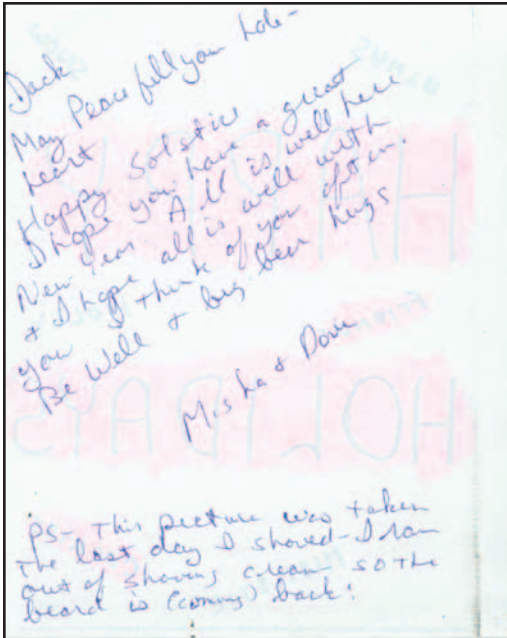 May Peace fill your hole-
heart
Happy Solstice
I hope you have a great
New Year All is well here
+ I hope all is well with
you I think of you often.
Be Well + big bear hugs
Misha + Dove
HAPPY
HOLIDAYS
PS- This picture was taken
the last day I shaved - I ran
out of shaving cream so the
beard is (coming) back!